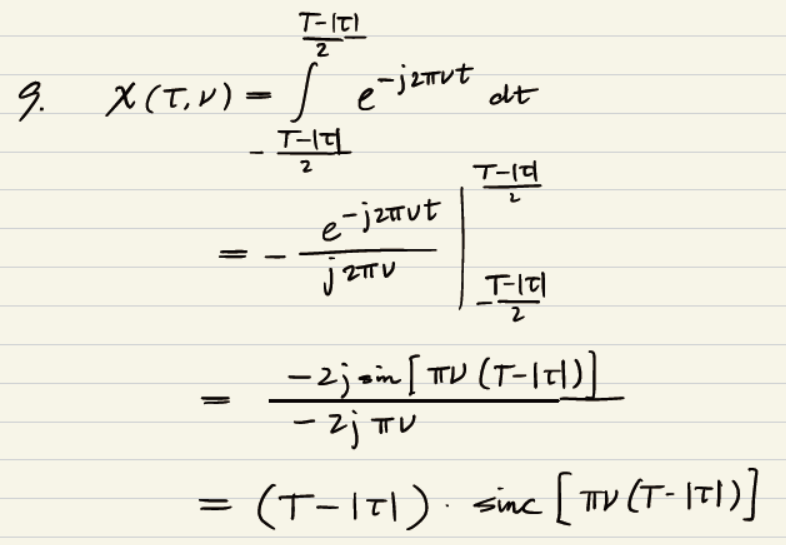 9. χ(τ,ν) = ∫_{-\frac{T-|τ|}{2}}^{\frac{T-|τ|}{2}} e^{-j2πνt} dt
= - \frac{e^{-j2πνt}}{j2πν} |_{-\frac{T-|τ|}{2}}^{\frac{T-|τ|}{2}}
= \frac{-2j sin[πν(T-|τ|)]}{-2jπν}
= (T-|τ|) · sinc[πν(T-|τ|)]